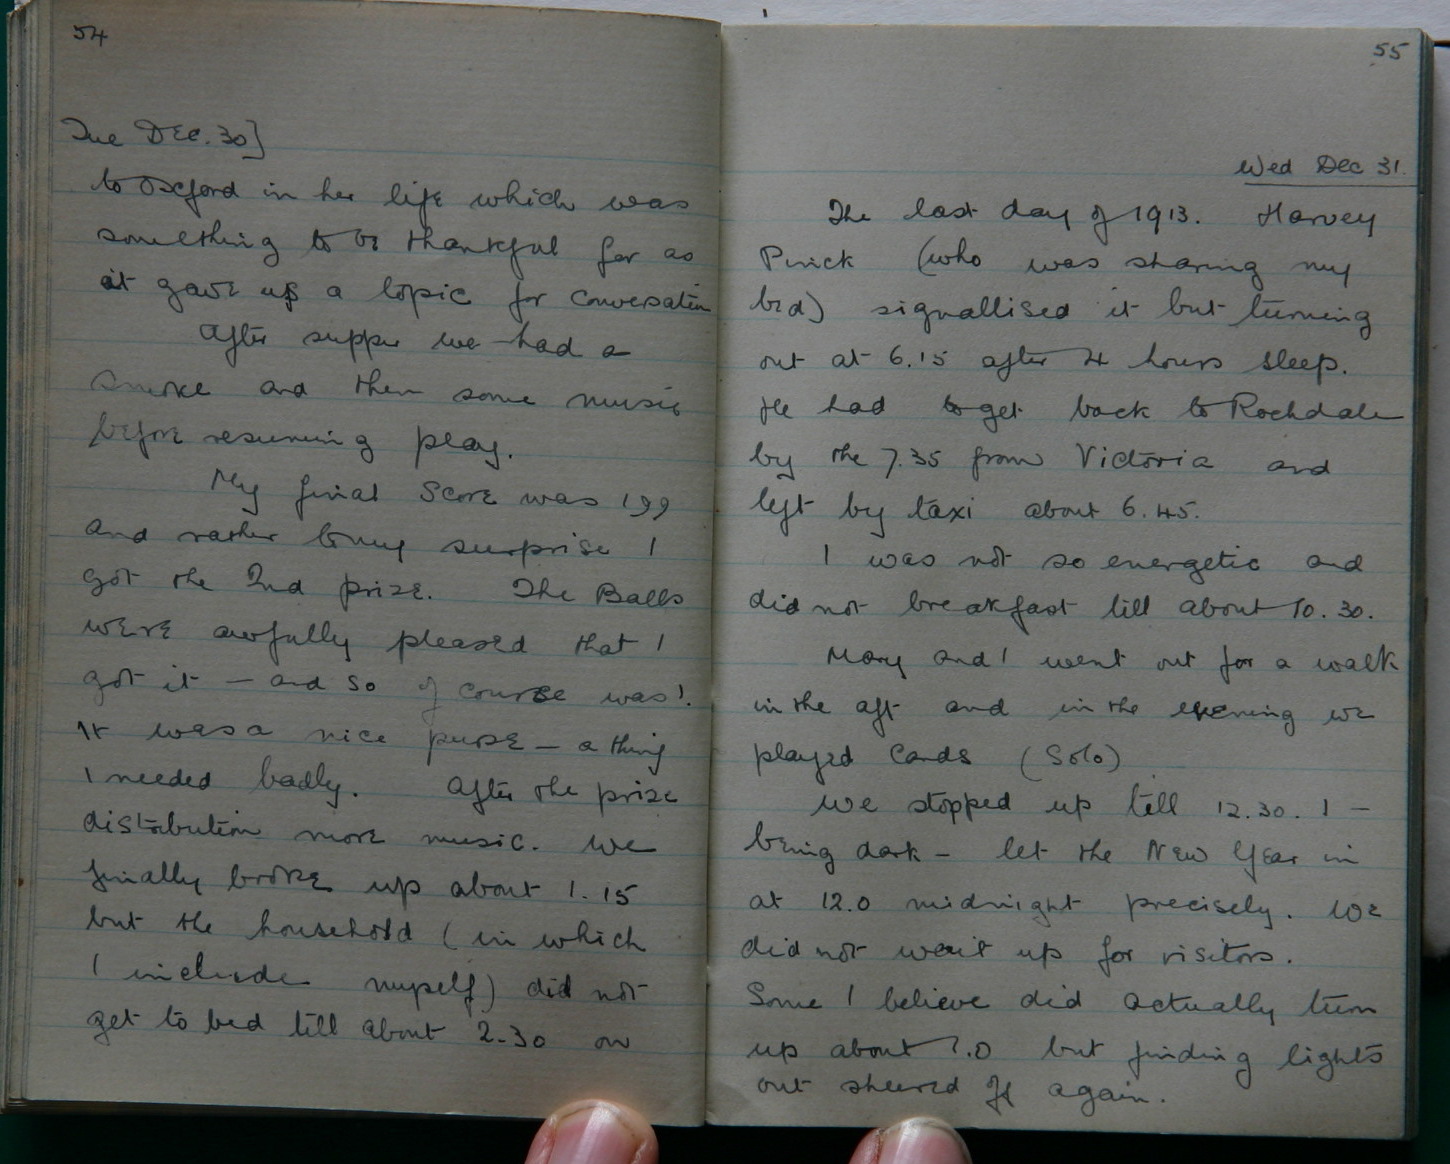 54
Tue Dec. 30]
to Oxford in her life which was
something to be thankful for as
it gave us a topic for conversation
After supper we had a
smoke and then some music
before resuming play.
My final score was 199
and rather to my surprise I
got the 2nd prize. The Balls
were awfully pleased that I
got it — and so of course was I.
It was a nice purse — a thing
I needed badly. After the prize
distribution more music. We
finally broke up about 1.15
but the household (in which
I include myself) did not
get to bed till about 2.30 or
55
Wed Dec 31.
The last day of 1913. Harvey
(who was sharing my
bed) signallised it but turning
out at 6.15 after 4 hours sleep.
He had to get back to Rochdale
by the 7.35 from Victoria and
left by taxi about 6.45.
I was not so energetic and
did not breakfast till about 10.30.
Mary and I went out for a walk
in the aft and in the evening we
played Cards (Solo)
We stopped up till 12.30. I —
being dark — let the New Year in
at 12.0 midnight precisely. We
did not wait up for visitors.
Some I believe did actually turn
up about 1.0 but finding lights
out sheered off again.